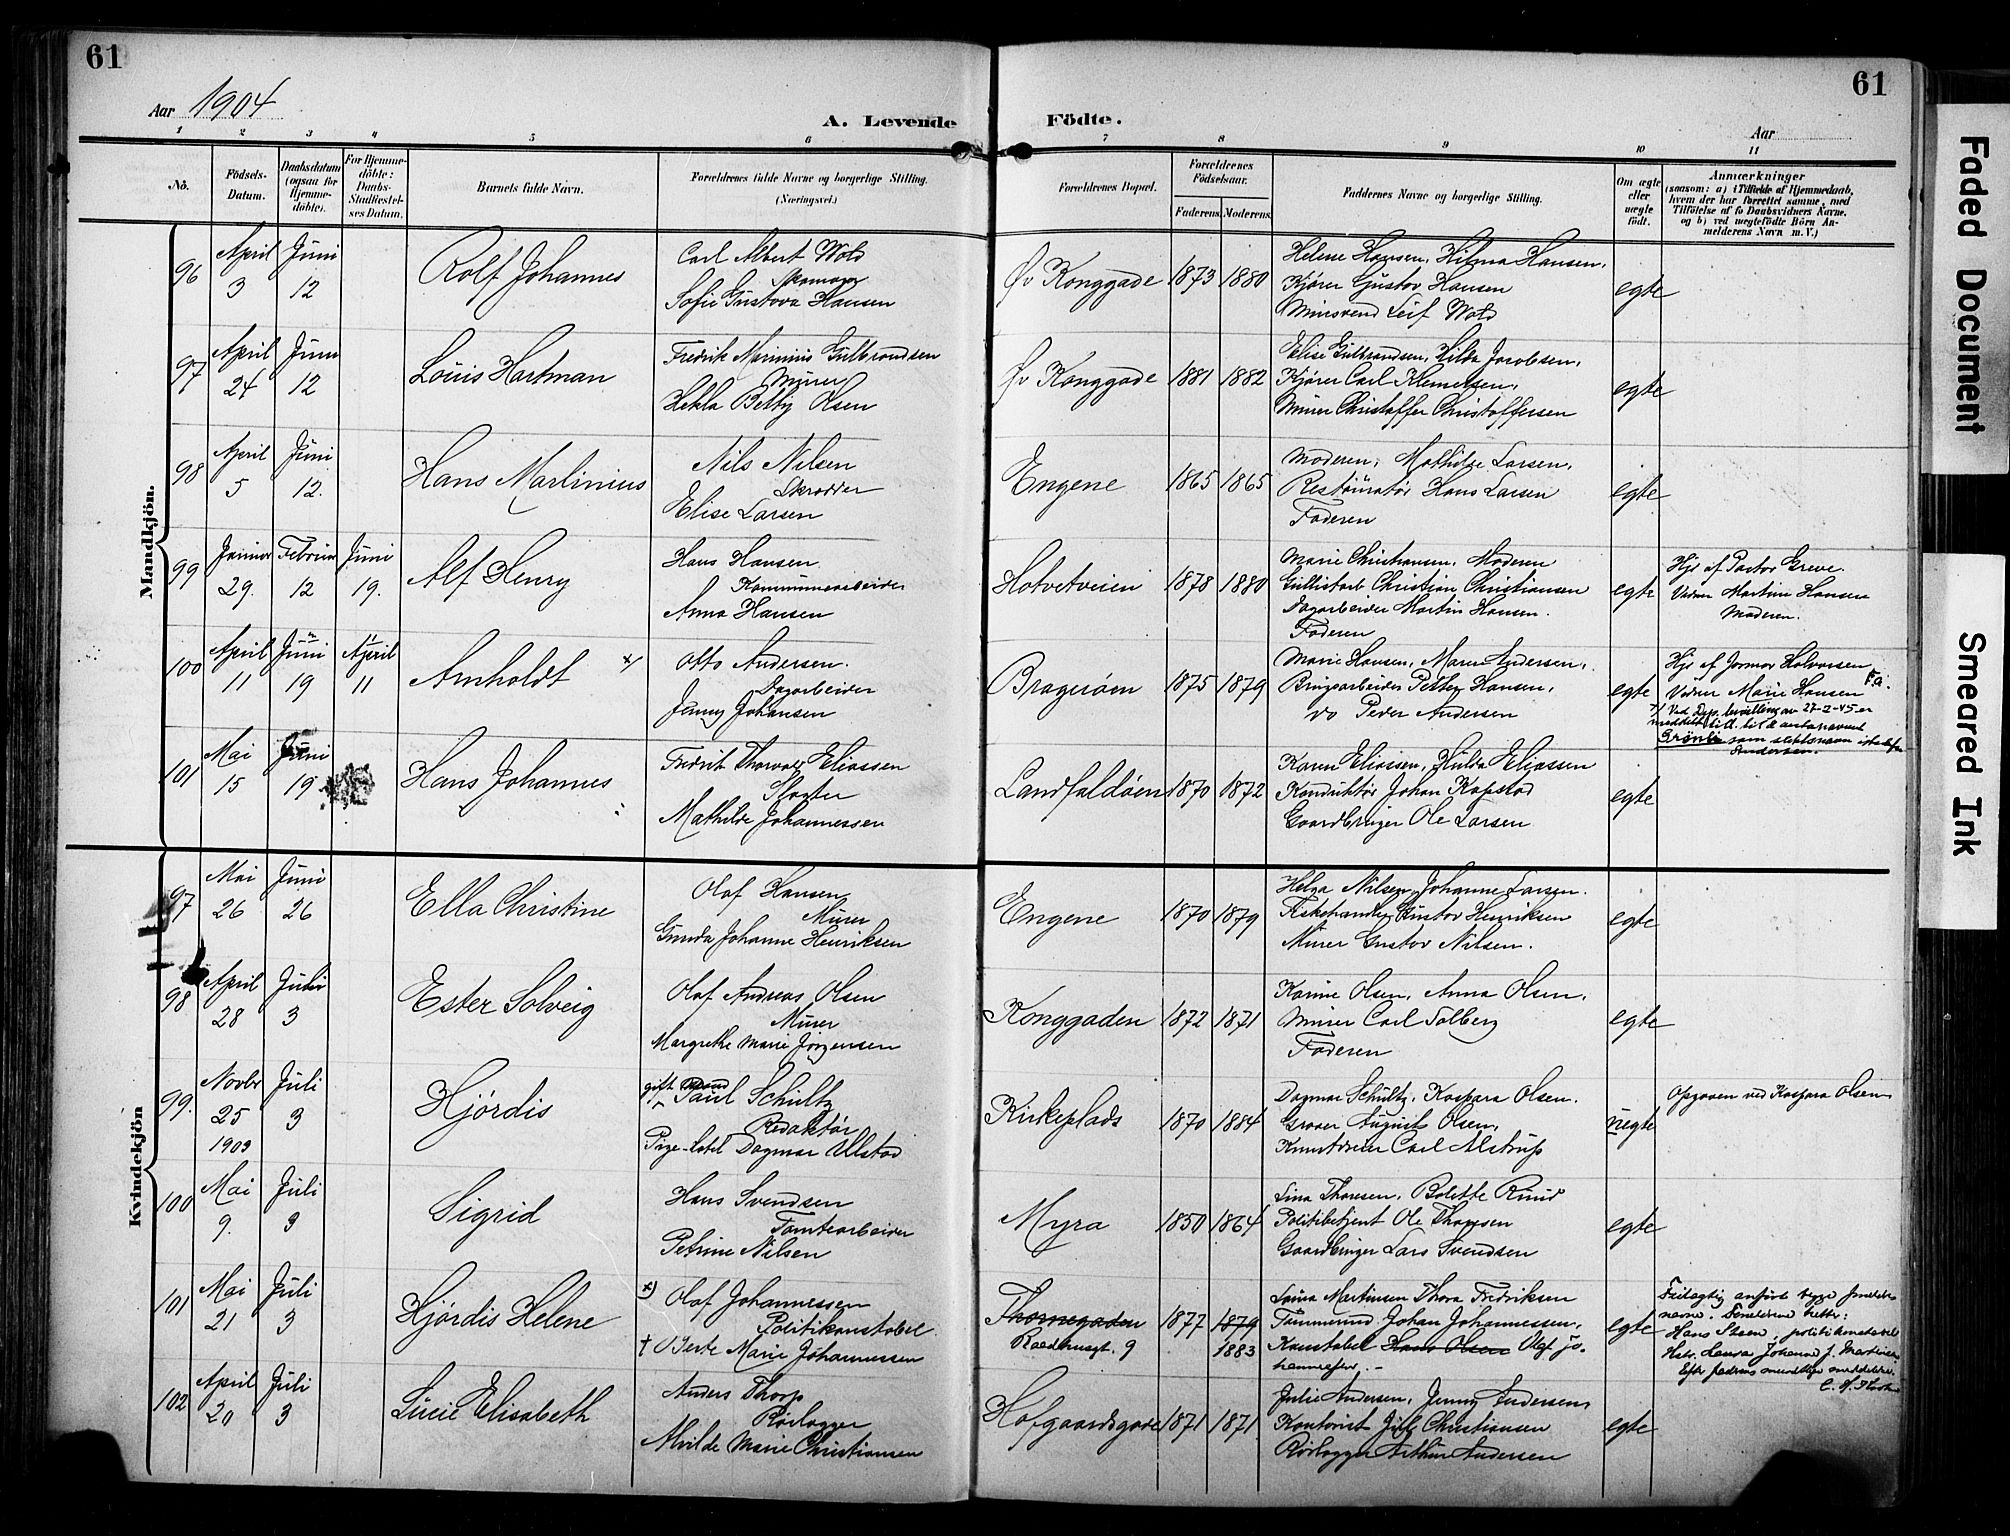 61
61
Aar 1904
A. Levende Födte.
Aar
1 2 3 4 5 6 7 8 9 10 11
No.
Födsels-Datum.
Daabsdatum (ogsaa for Hjemme-döbte).
For Hjemme-döbte: Daabs-Stadfæstel-ses Datum.
Barnets fulde Navn.
Forældrenes fulde Navne og borgerlige Stilling. (Næringsvei.)
Forældrenes Bopæl.
Forældrenes Födselsaar.
Faderens
Moderens
Faddernes Navne og borgerlige Stilling.
Om ægte eller uægte födt.
Anmærkninger
(saasom: a) i Tilfælde af Hjemmedaab,
hvem der har forrettet samme, med
Tilföielse af to Daabsvidners Navne,
og b) ved uægtefödte Börn An-
melderens Navn m. V.)
Mandkjön.
96
April 3
Juni 12
Rolf Johannes
Carl Albert Wold
Skomager
Sofie Gustava Hansen
Øv Konggade
1873
1880
Helene Hansen, Hilma Hansen,
Kjører Gustav Hansen
Minsvend Leif Wold
egte
97
April 24
Juni 12
Louis Hartman
Fredrik Marinius Gulbrandsen
Murer
Hekla Betty Olsen
Øv Konggade
1881
1882
Elise Gulbrandsen, Hilda Jacobsen,
Kjører Carl Klemetsen,
Murer Christoffer Christoffersen
egte
98
April 5
Juni 12.
Hans Martinius
Nils Nilsen
Skrædder
Elise Larsen
Engene
1865
1865
Moderen, Mathilde Larsen,
Restauratør Hans Larsen
Faderen
egte
99
Januar 29.
Februar 12
Juni 19.
Alf Henry
Hans Hansen
Kommunearbeider
Anna Hansen
Hotvetveien
1878
1880
Marie Christiansen, Moderen
Christian Christiansen
Dagarbeider Martin Hansen.
Faderen
egte
Hjd af Pastor Greve.
Vidner Martine Hansen
Moderen.
100
April 11
Juni 19
April 11
Arnholdt x/
Otto Andersen.
Dagarbeider
Jenny Johansen
Bragerøen
1875
1879
Marie Hansen, Maren Andersen,
Brugsarbeider Petter Hansen,
do Peder Andersen
egte
Hjd af Jormor Halvorsen
Vidner Marie Hansen Fa.
x/ Ved Dep. bevilling av 27-2-45 er
meddelt till. til å anta navnet
Grønli som slektsnavn istedenfor
Andersen.
101
Mai 15
Juni 19
Hans Johannes
Fredrik Thorvald Eliassen
Slagter
Mathilde Johannessen
Landfaldøen
1870
1872
Karen Eliassen, Hulda Eliassen
Konduktør Johan Kopstad
Gaardbruger Ole Larsen
egte
Kvindekjön
97
Mai 26
Juni 26
Ella Christine
Olaf Hansen
Murer
Gunda Johanne Henriksen
Engene
1870
1879
Helga Nilsen, Johanne Larsen.
Fiskehandler Gustav Henriksen
Murer Gustav Nilsen.
egte
98
April 28
Juli 3
Ester Solveig
Olaf Andreas Olsen
Murer
Margrethe Marie Jørgensen
Konggaden
1872
1871
Karine Olsen, Anna Olsen,
Murer Carl Solberg
Faderen
egte
99.
Novbr 25 1903
Juli 3
Hjørdis
gift mand Paul Schultz
Redaktør
Pige Dagmar Ulstad
Kirkeplads
1870
1884
Dagmar Schultz, Kaspara Olsen.
Graver August Olsen,
Kunstdreier Carl Alstrup
uegte
Opgaven ved Kaspara Olsen
100
Mai 9.
Juli 3
Sigrid
Hans Svendsen
Tomtearbeider
Petrine Nilsen
Myra
1850
1864
Lina Thoresen, Bolette Ruud
Politibetjent Ole Thoresen
Gaardbruger Lars Svendsen
egte
101
Mai 21
Juli 3
Hjørdis Helene
x) Olaf Johannessen
Politikonstabel
† Berte Marie Johannessen
Thornegaden
Raadhusgt. 9
1877
1879
1883
Laura Martinsen Thora Fredriksen
Tømmermd Johan Johannessen,
Konstabel Hans Olsen Olaf Jo-
hannessen. -
egte
Feilagtig anført begge forældres
navne. Forældrene hette:
Hans Steen, politikonstabel
Hstr. Laura Johanne J. Martinsen
Efter faderens mundtlige meddelelse.
102
April 20
Juli 3
Lucie Elisabeth
Anders Thorp
Rørlægger
Alvilde Marie Christiansen
Hofgaardsgade
1871
1871
Julie Andersen, Jenny Andersen,
Kontorist Juls Christiansen
Rørlægger Arthur Andersen
egte
Faded Document
Smeared Ink